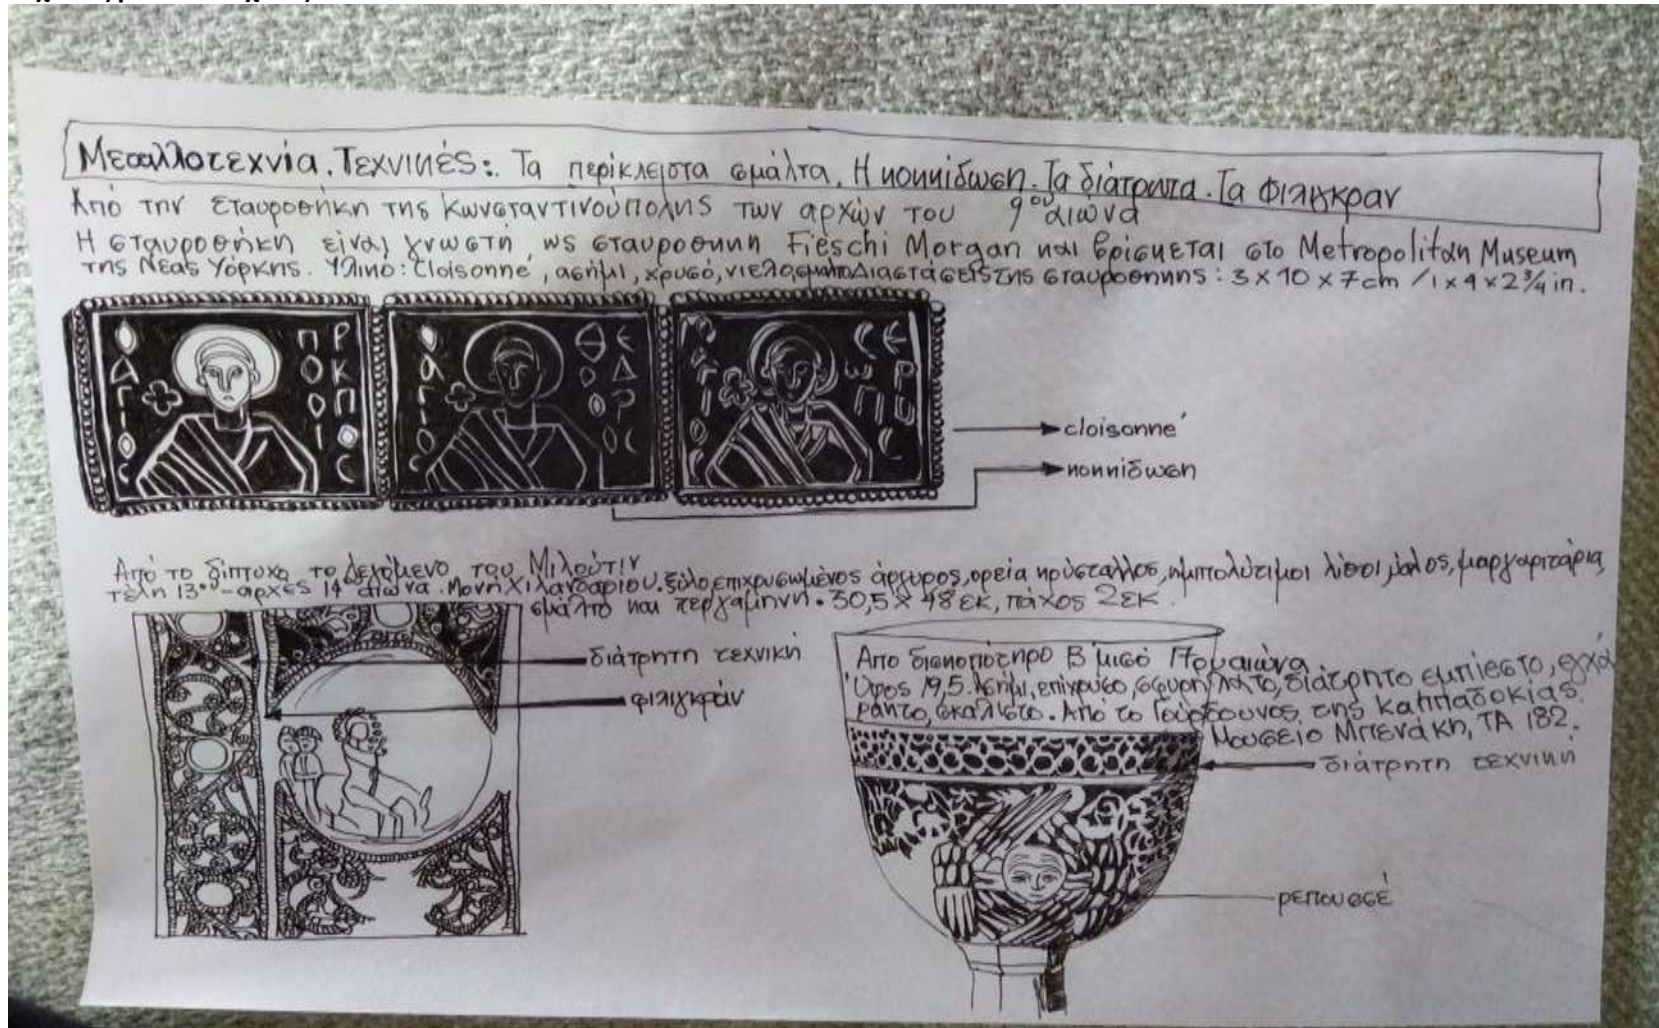 Μεταλλοτεχνία. Τεχνικές: Τα περίκλειστα σμάλτα. Η κοκκίδωση. Τα διάτρητα. Τα Φιλιγκραν
Από την σταυροθήκη της Κωνσταντινούπολης των αρχών του 9ου αιώνα
Η σταυροθήκη είναι γνωστή ως σταυροθηκη Fieschi Morgan και βρίσκεται στο Metropolitan Museum
της Νέας Υόρκης. Υλικό: cloisonné, ασήμι, χρυσό, νιελο, σμαλτο Διαστάσεις της σταυροθηκης: 3 x 10 x 7 cm / 1 x 4 x 2 3/4 in.
Ο ΑΓΙΟС ΠΡΟΚΟΠΙΟС
Ο ΑΓΙΟС ΘΕΟΔΟΡΟС
cloisonné
κοκκίδωση
Από το δίπτυχο το λεγόμενο του Μιλούτιν
τέλη 13ου - αρχές 14ου αιώνα. Μονή Χιλανδαρίου. ξύλο, επιχρυσωμένος άργυρος, ορεία κρύσταλλος, ημιπολύτιμοι λίθοι, μαργαριτάρια,
σμάλτο και περγαμηνή. 30,5 x 48 εκ, πάχος 2 εκ.
διάτρητη τεχνική
φιλιγκράν
Απο δισκοπότηρο Β μισό 17ου αιώνα
Ύψος 19,5. Ασήμι, επίχρυσο, σφυρήλατο, διάτρητο εμπίεστο, εγχά
ρακτο, σκαλιστο. Από το Γούρδουνος της Καππαδοκίας.
Μουσείο Μπενάκη, ΤΑ 182.
διάτρητη τεχνικη
ρεπουσσέ